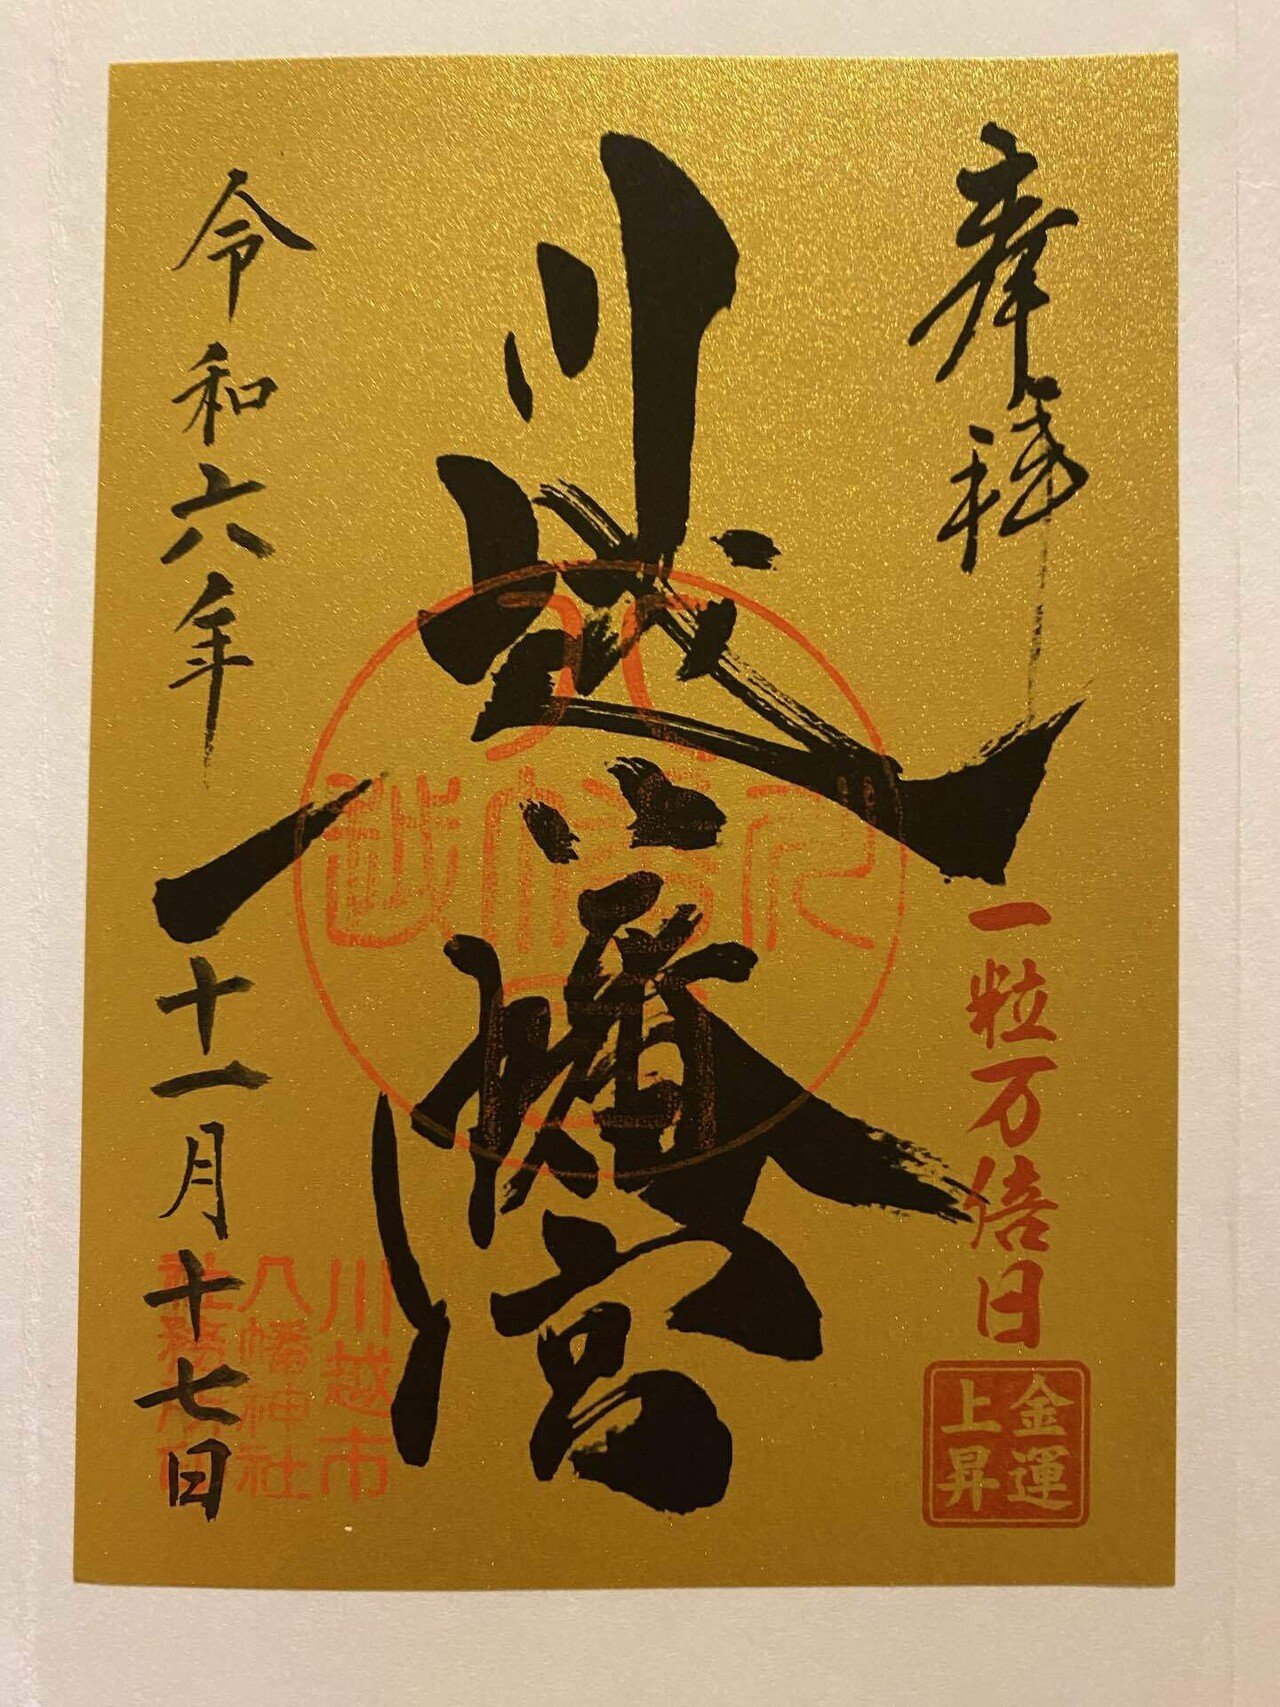 奉拝
一粒万倍日
金運
上昇
川越八幡宮
川越市
八幡神社
社務所印
令和六年
十一月十七日